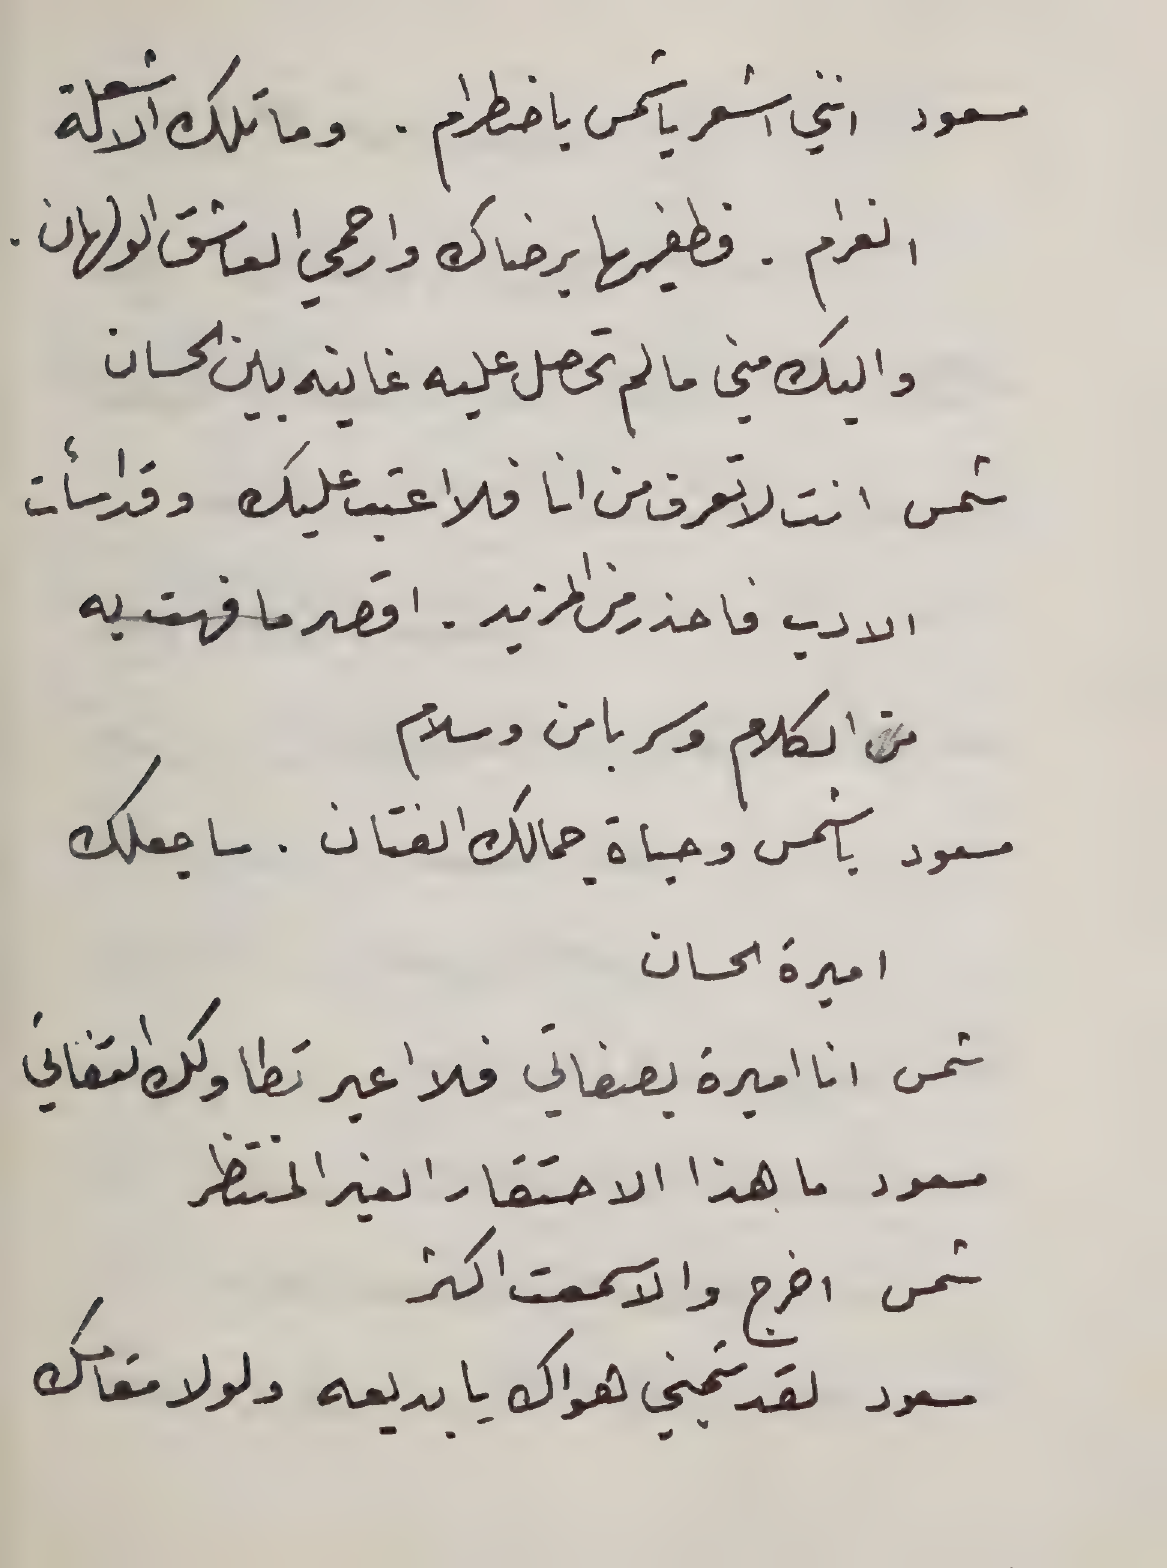 مسعود انني اشعر ياشمس باضطرام . وما تلك الا شعلة
الغرام . فطفيها برضاك وارحمي العاشق الولهان .
واليك مني مالم تحصل عليه غانيه بين الحسان
شمس انت لا تعرف من انا فلا عتب عليك وقد اسأت
الادب فاحذر من المزيد . اقصر ما فهت به
من الكلام وسر بامن وسلام
مسعود ياشمس وحياة جمالك الفتان . ساجعلك
اميرة الحسان
شمس انا اميرة بصفاتي فلا اعير تطاولك التفاتي
مسعود ما هذا الاحتقار الغير المنتظر
شمس اخرج والا سمعت اكثر
مسعود لقد هواك يا بديعه ولولا مقامك